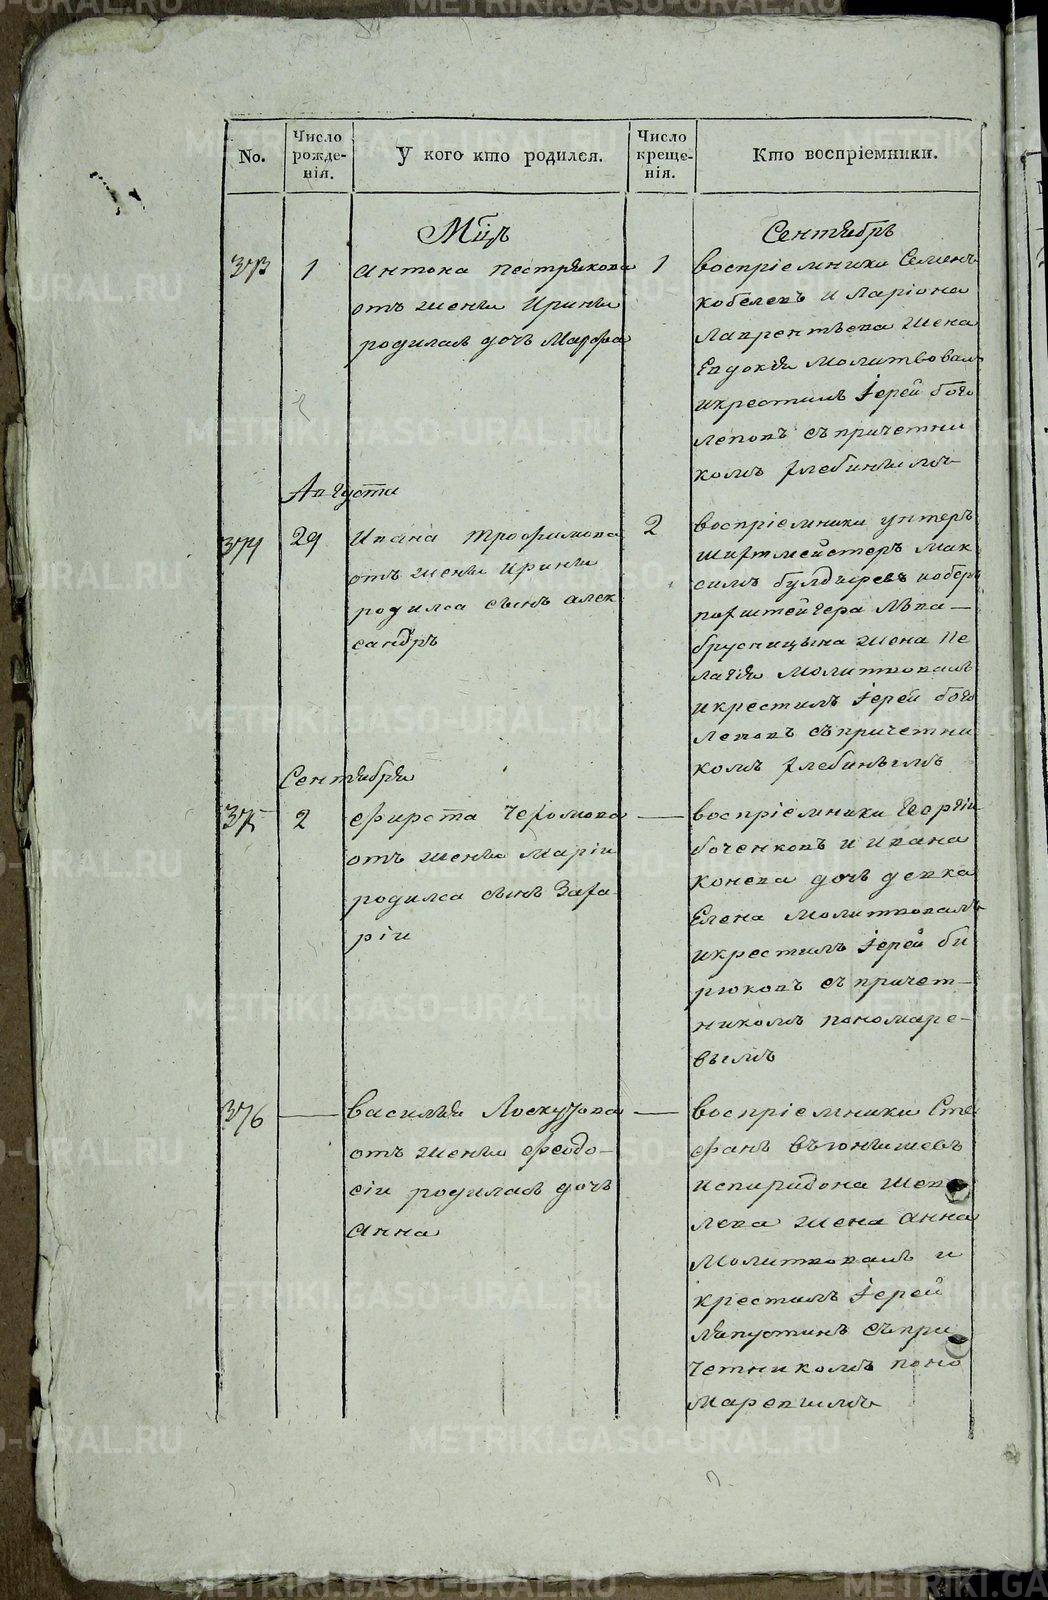 No.
Число
рожде-
нія.
У кого кто родился.
Число
креще-
нія.
Кто воспріемники.
Мцъ
Сентябрь
373
1
антона пестрякова
отъ жены Ирины
родилась дочь Марфа
1
воспріемники Семенъ
кобелевъ и Ларіона
Лаврентьева жена
Евдокія молитвовалъ
и крестилъ Іерей бого
леповъ съ причетни
комъ хлебинымъ
Августа
374
29
Ивана трофимова
отъ жены Ирины
родился сынъ алек
сандръ
2
воспріемники унтеръ
шихтмейстеръ мак
симъ булдыревъ и обер
брусницына жена Пе
лагія молитвовалъ
и крестилъ Іерей бого
леповъ съ причетни
комъ хлебинымъ
Сентября
375
2
отъ жены Маріи
родился сынъ Заха
ріи
—
воспріемники Георгій
боченковъ и ивана
конева дочь девка
Елена молитвовалъ
и крестилъ Іерей би
рюковъ съ причет-
никомъ пономаре-
вымъ
376
—
василья Лоскутова
отъ жены феодо-
сіи родилась дочь
анна
—
воспріемники Сте
фанъ
и спиридона шеве
лева жена анна
молитвовалъ и
крестилъ Іерей
ляпустинъ съ при
четникомъ поно
маревымъ
METRIKI.GASO-URAL.RU